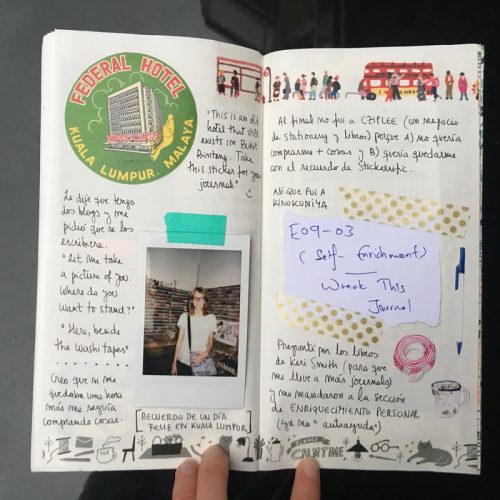 FEDERAL HOTEL
KUALA LUMPUR. MALAYA
"This is an old
hotel that still
exists in Bukit
Bintang. Take
this sticker for your
journal"
Le dije que tengo
dos blogs y me
pidió que se los
escribiera.
"Let me take
a picture of you.
Where do you
want to stand?"
"Here, beside
the washi tapes"
Creo que si me
quedaba una hora
más me seguía
comprando cosas.
[RECUERDO DE UN DÍA
FELIZ EN KUALA LUMPUR]
Al final no fui a CZIPLEE (un negocio
de stationery y libros) porque A) no quería
comprarme + cosas y B) quería quedarme
con el recuerdo de Stickerrific.
ASÍ QUE FUI A
KINOKUNIYA.
E09-03
(Self-Enrichment)
Wreck This
Journal
Pregunté por los libros
de Keri Smith (para que
me lleve a más journals)
y me mandaron a la sección
de ENRIQUECIMIENTO PERSONAL
(ya no "autoayuda")
TEA
CALM TIME